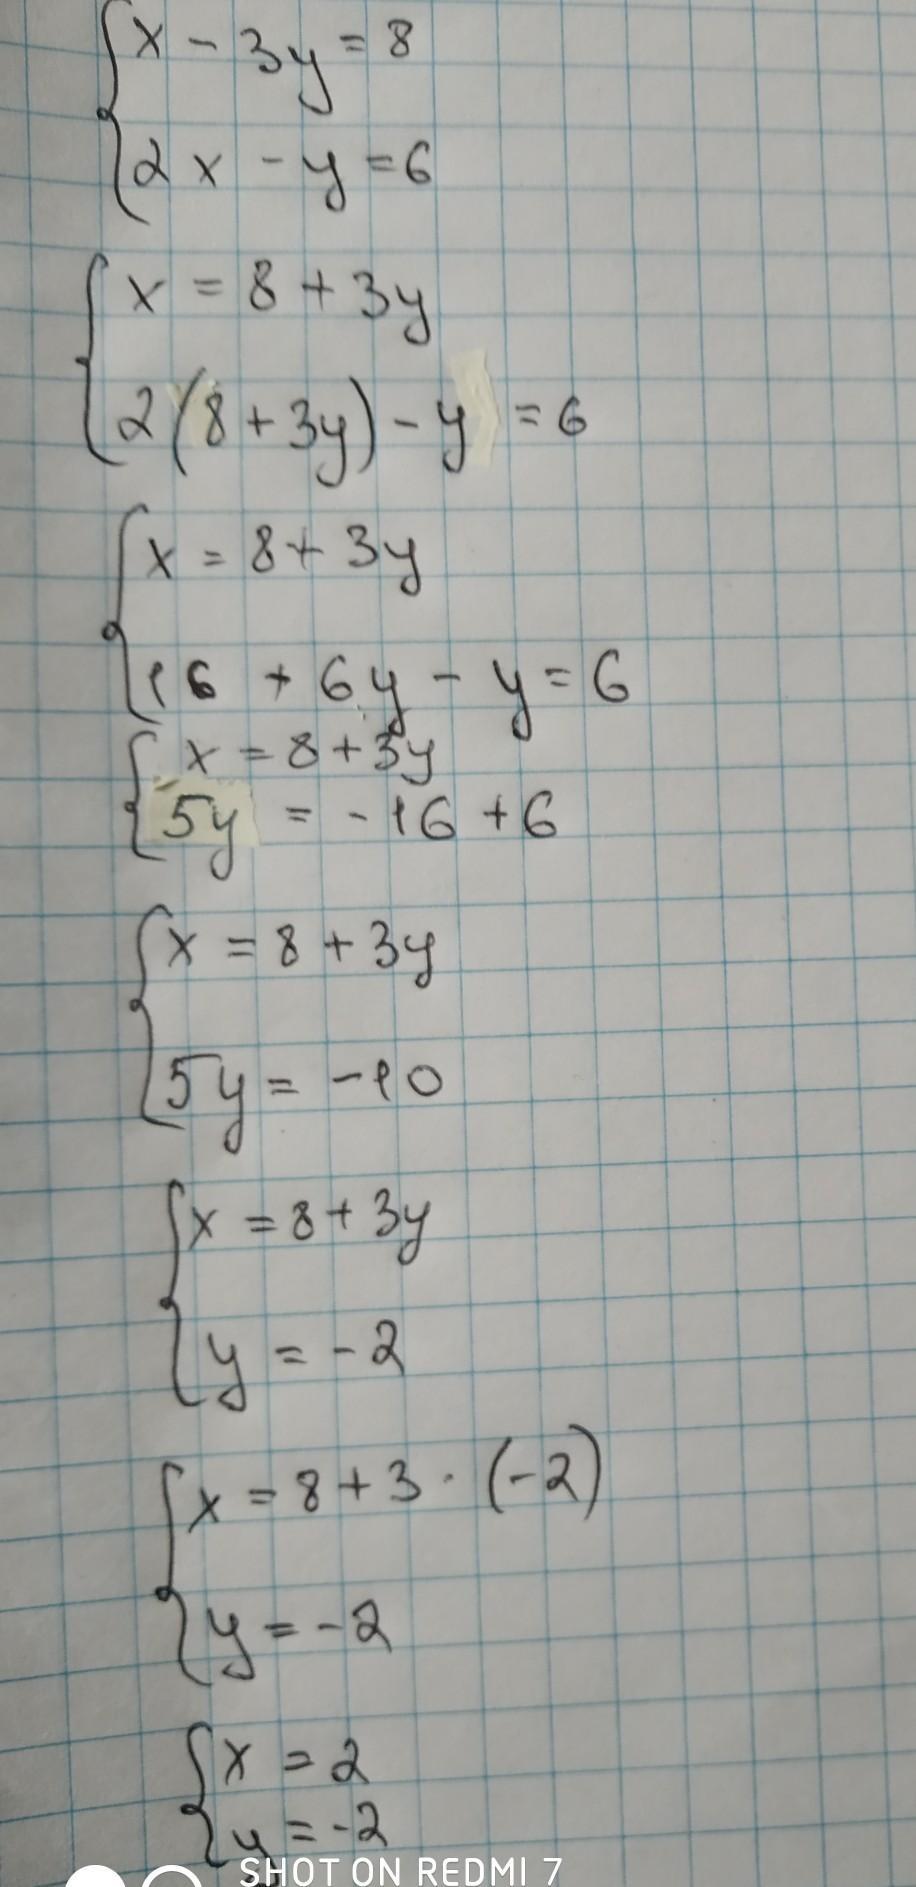 x - 3y = 8
2x - y = 6
x = 8 + 3y
2(8 + 3y) - y = 6
x = 8 + 3y
16 + 6y - y = 6
x = 8 + 3y
5y = -16 + 6
x = 8 + 3y
5y = -10
x = 8 + 3y
y = -2
x = 8 + 3 · (-2)
y = -2
x = 2
y = -2
SHOT ON REDMI 7